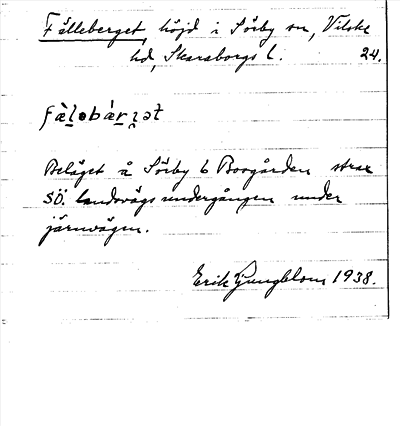 Fälleberget, höjd i Sörby sn, Vilske
hd, Skaraborgs l. 24.
Beläget å Sörby 6 Boogården strax
SÖ. landsvägsundergången under
järnvägen.
Erik Ljungblom 1938.